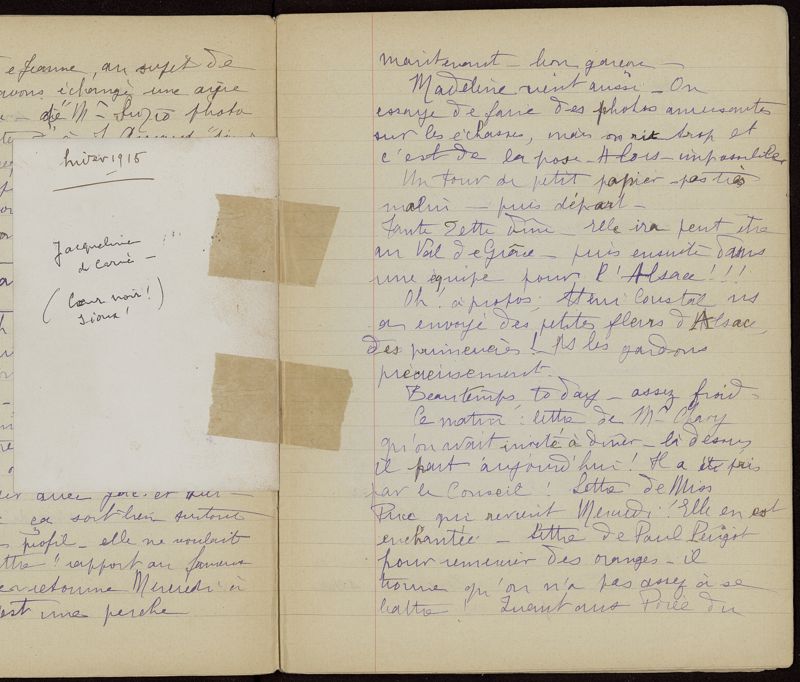 e Jeanne, au sujet de
avons échangé une
de Mr photo
hiver 1915
Jacqueline
de
(Cœur noir!
Sioux!)
avec joie et
ça soit bien surtout
profil - elle ne voulait
rapport au fameux
retourne Mercredi à
est une perche
maintenant - bon garçon -
Madeline vient aussi - On
essaye de faire des photos amusantes
sur les échasses, mais on rit trop et
c'est de la pose. Alors - impossible
Un tour de petit papier - pas très
malin - puis départ -
Tante Zette dîne - Elle ira peut être
au Val de Grâce - puis ensuite dans
une équipe pour l'Alsace!!!
Oh! à propos, Henri Coustal ns
a envoyé des petites fleurs d'Alsace,
des primevères! Ns les gardons
précieusement.
Beautemps to day - assez froid -
Ce matin: lettre de Mr Clary
qu'on avait invité à dîner - là dessus
il part aujourd'hui! Il a été pris
par le Conseil! Lettre de Miss
qui revient Mercredi! Elle en est
enchantée - lettre de Paul
pour remercier des oranges - il
trouve qu'on n'a pas assez à se
battre! Quant aux du